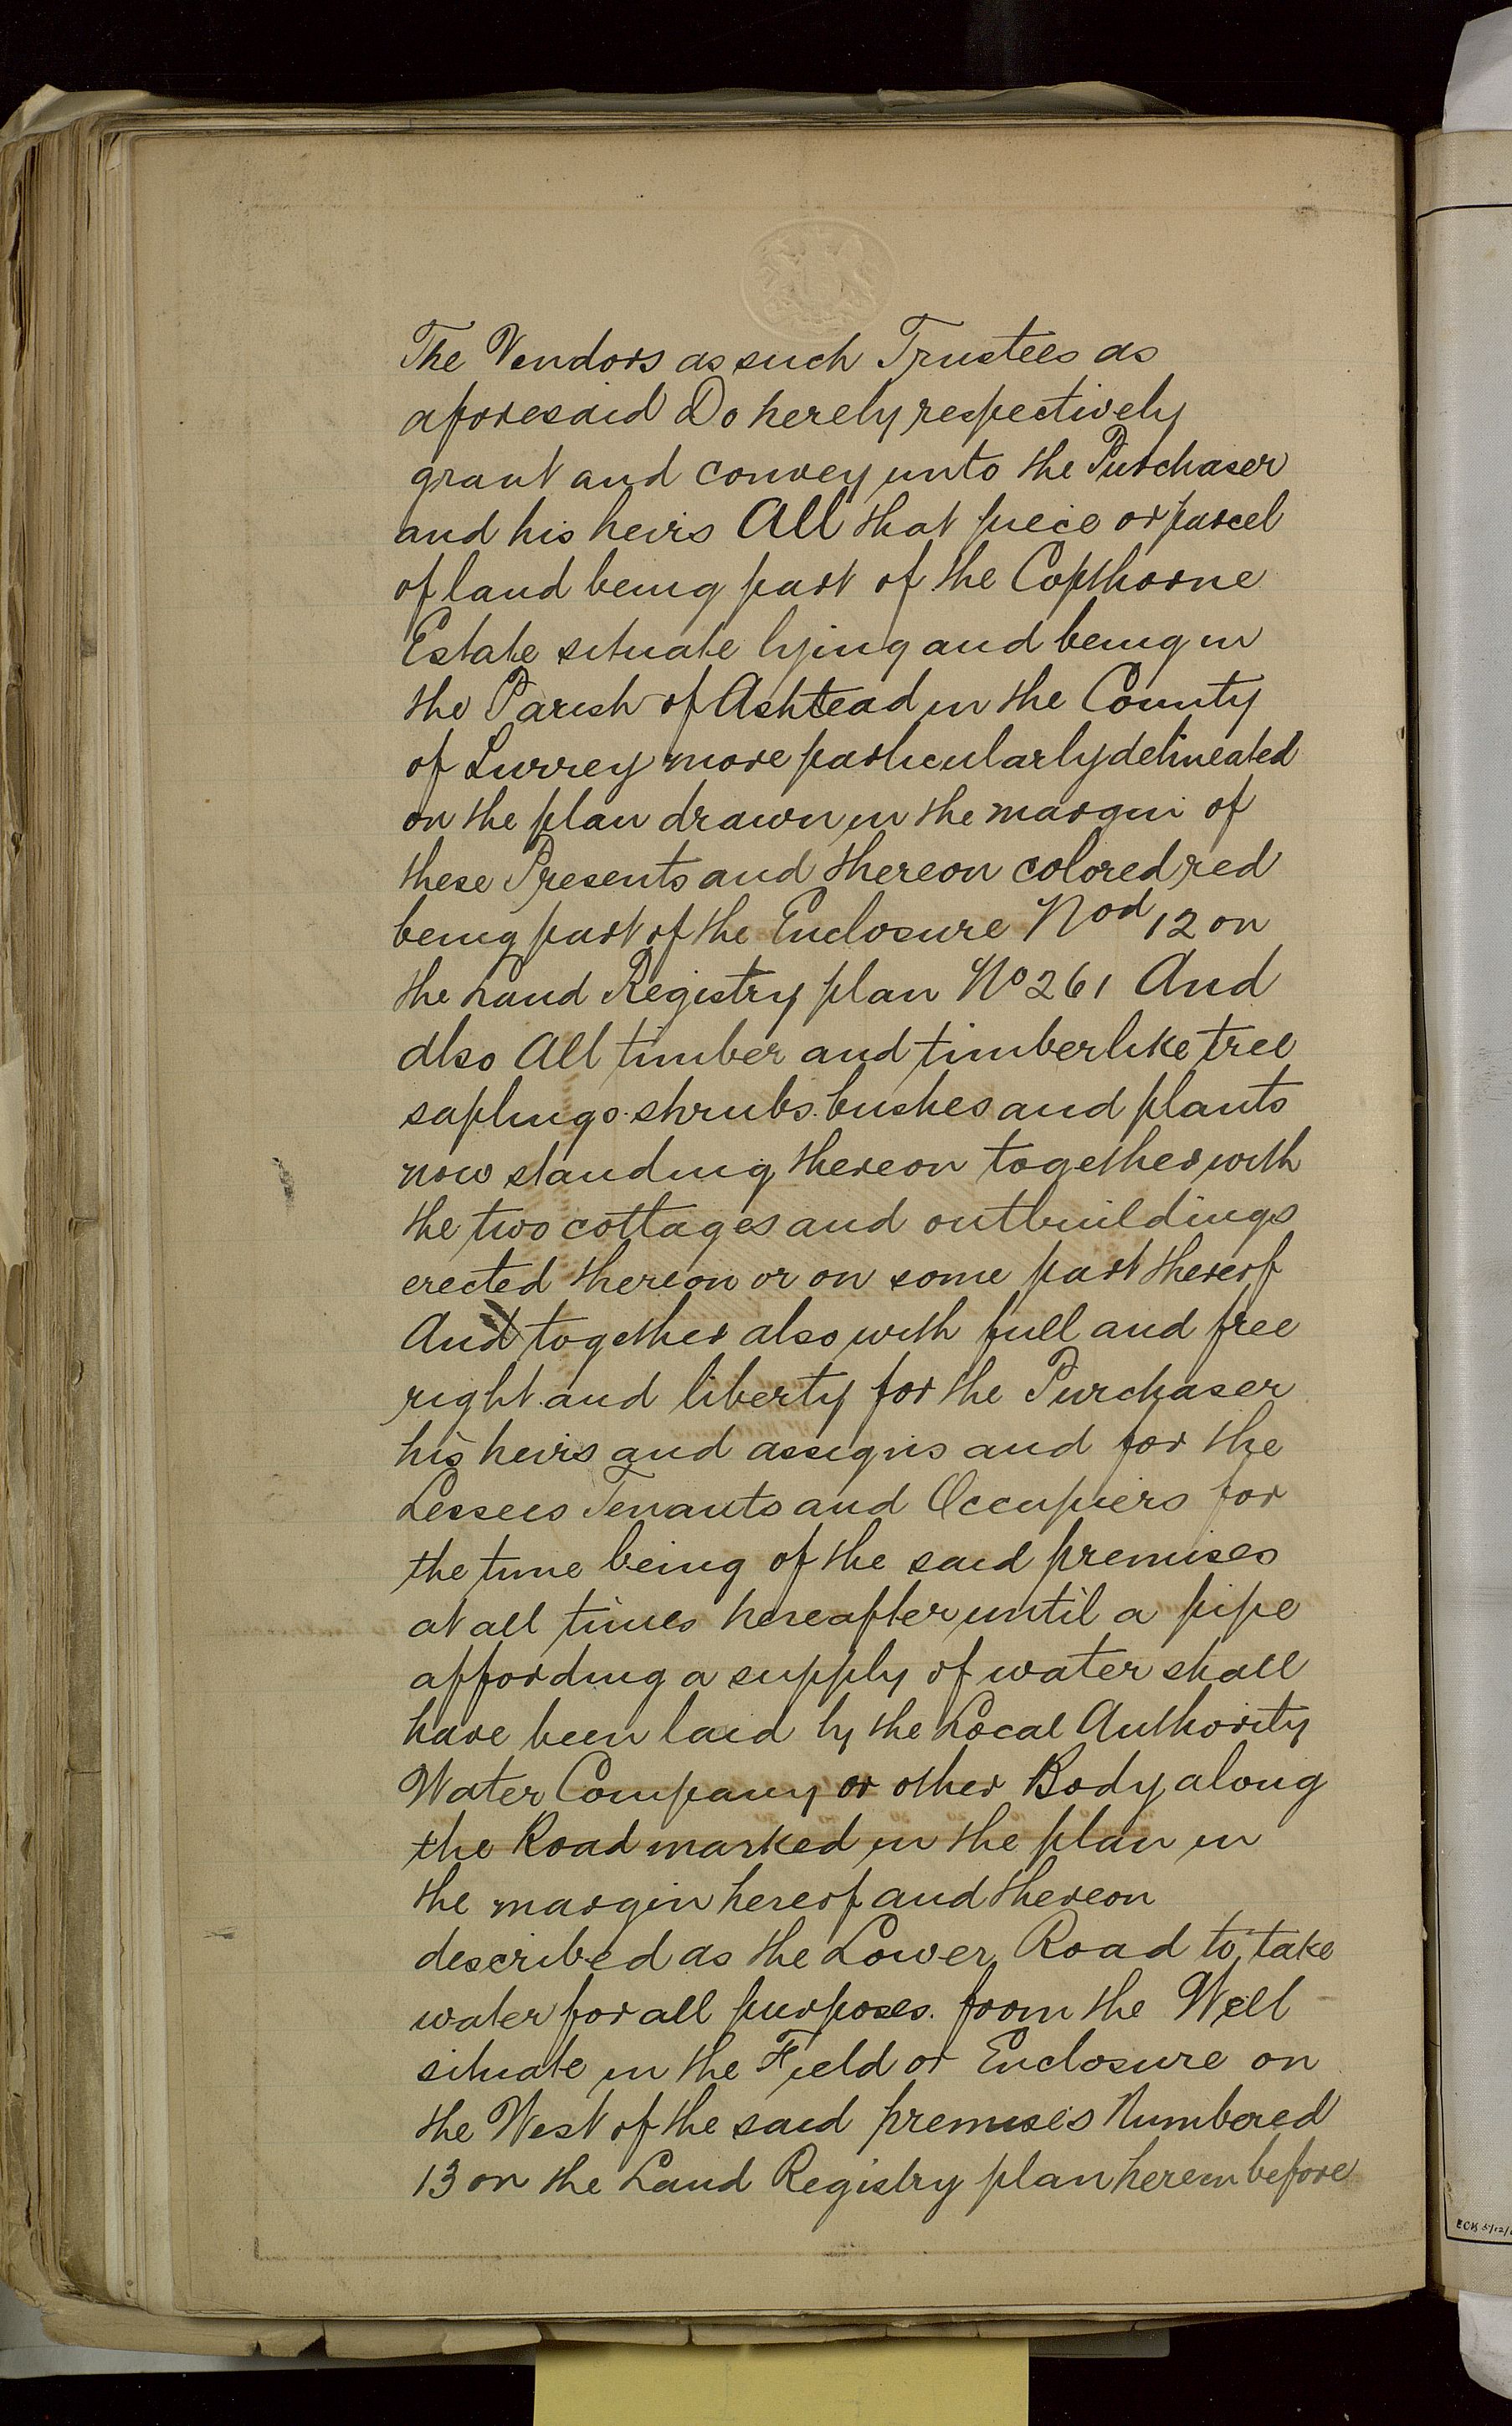 The Vendors as such Trustees as
aforesaid Do hereby respectively
grant and convey unto the Purchaser
and his heirs All that piece or parcel
of land being part of the Copthorne
Estate situate lying and being in
the Parish of Ashtead in the County
of Surrey more particularly delineated
on the plan drawn in the margin of
these Presents and thereon colored red
being part of the Enclosure Nod 12 on
the Land Registry plan No 261 And
also All timber and timberlike tree
saplings shrubs bushes and plants
now standing thereon together with
the two cottages and outbuildings
erected thereon or on some part thereof
And together also with full and free
right and liberty for the Purchaser
his heirs and assigns and for the
Lessees Tenants and Occupiers for
the time being of the said premises
at all times hereafter until a pipe
affording a supply of water shall
have been laid by the Local Authority
Water Company or other Body along
the Road marked in the plan in
the margin hereof and thereon
described as the Lower Road to take
water for all purposes from the Well
situate in the Field or Enclosure on
the West of the said premises Numbered
13 on the Land Registry plan herein before